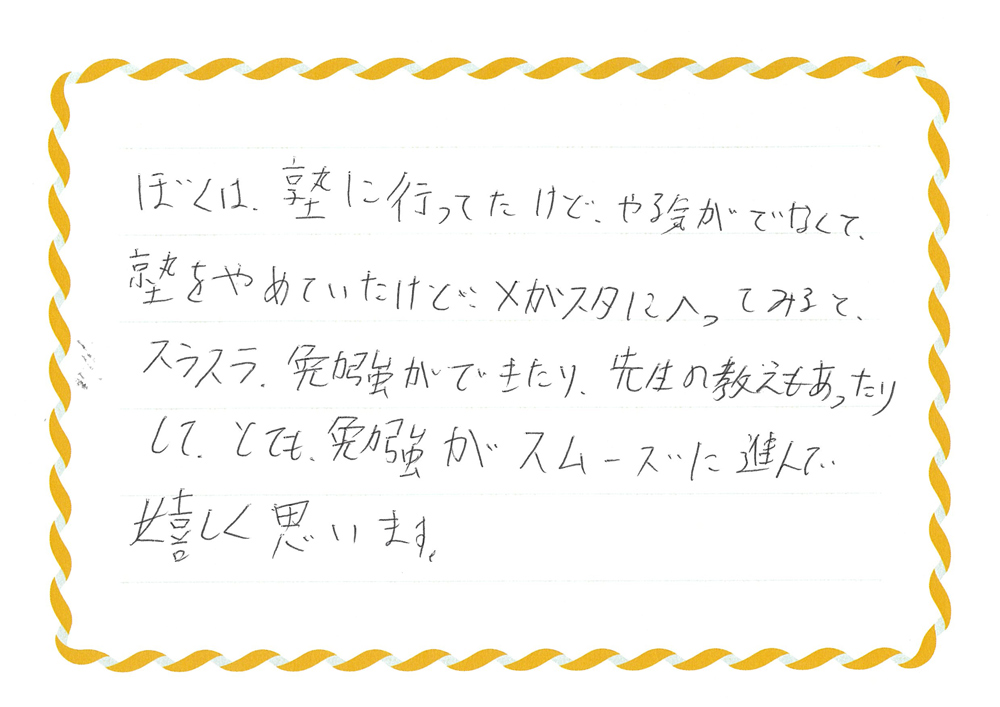 ぼくは、塾に行ってたけど、やる気がでなくて、
塾をやめていたけど、メガスタに入ってみると、
スラスラ、勉強ができたり、先生の教えもあったり
して、とても、勉強がスムーズに進んで、
嬉しく思います。